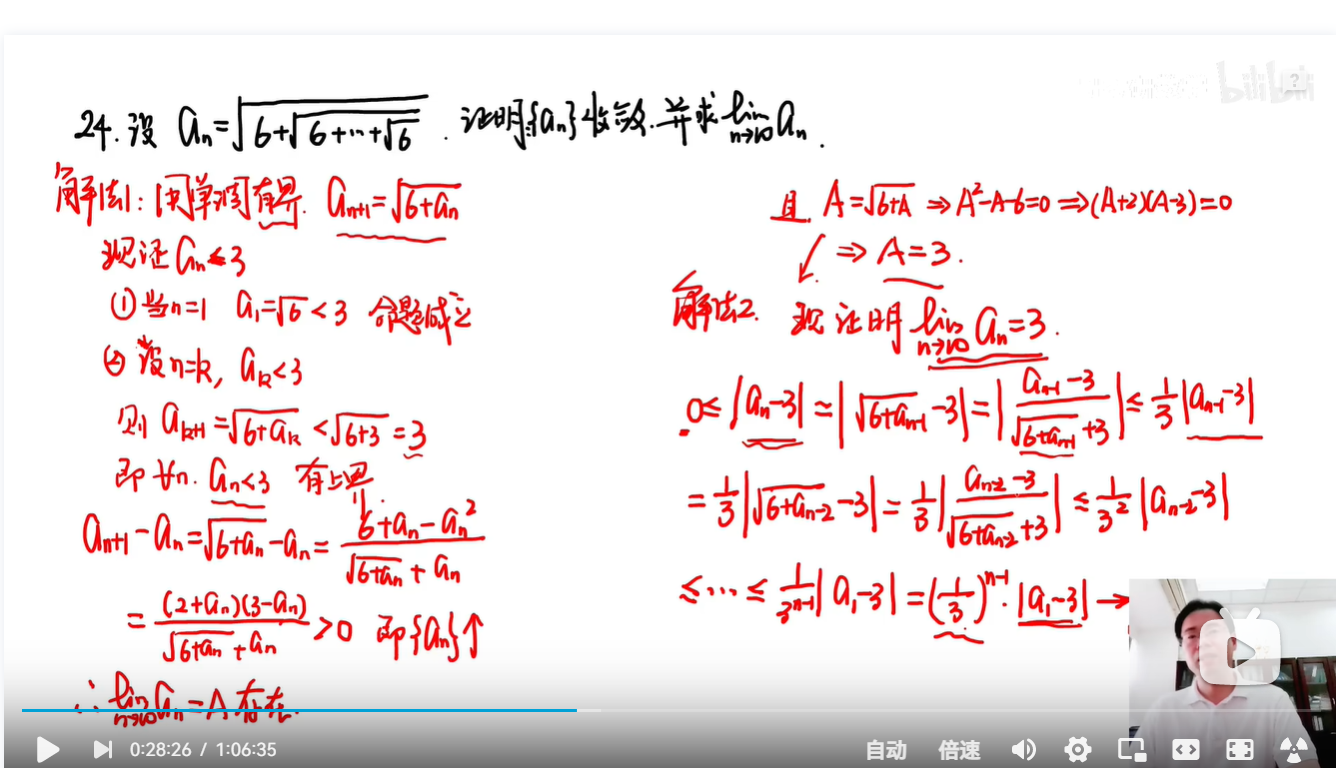 bilibili
24. 设 aₙ=√(6+√(6+⋯+√6)) . 证明{aₙ}收敛. 并求 lim_{n→∞} aₙ .
解法1: 用单调有界. aₙ₊₁=√(6+aₙ)
现证 aₙ<3
① 当n=1 a₁=√6<3 命题成立
② 设n=k, aₖ<3
则 aₖ₊₁=√(6+aₖ)<√(6+3)=3
即 ∀n. aₙ<3 有上界
aₙ₊₁-aₙ=√(6+aₙ)-aₙ=(6+aₙ-aₙ²)/(√(6+aₙ)+aₙ)
=((2+aₙ)(3-aₙ))/(√(6+aₙ)+aₙ)>0 即{aₙ}↑
∴ lim_{n→∞} aₙ=A 存在.
且 A=√(6+A) ⇒A²-A-6=0 ⇒(A+2)(A-3)=0
⇒ A=3.
解法2. 现证明 lim_{n→∞} aₙ=3.
0≤|aₙ-3|=|√(6+aₙ₋₁)-3|=|(aₙ₋₁-3)/(√(6+aₙ₋₁)+3)|≤1/3|aₙ₋₁-3|
=1/3|√(6+aₙ₋₂)-3|=1/3|(aₙ₋₂-3)/(√(6+aₙ₋₂)+3)|≤1/3²|aₙ₋₂-3|
≤⋯≤1/3ⁿ⁻¹|a₁-3|=(1/3)ⁿ⁻¹·|a₁-3|→
0:28:26 / 1:06:35
自动 倍速